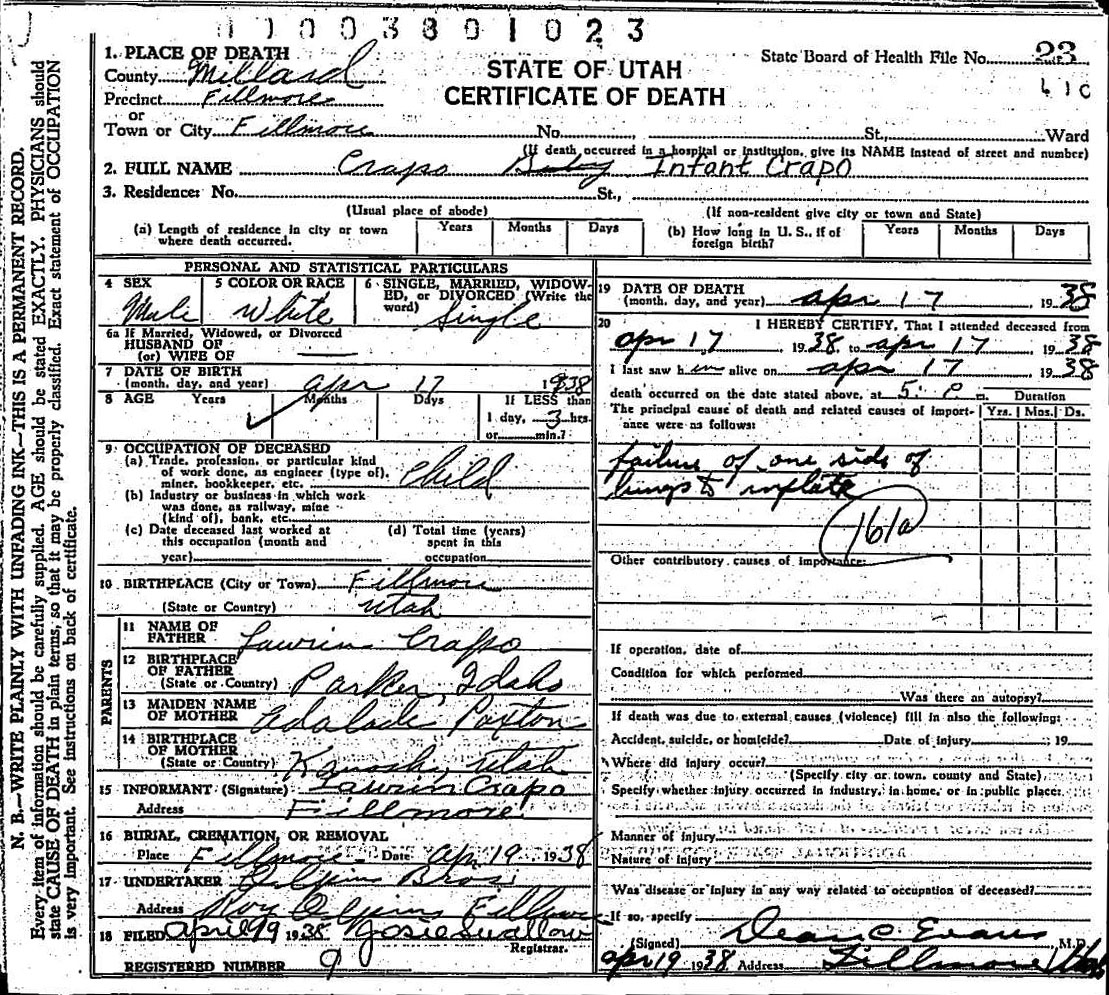 1 1 0 0 3 8 0 1 0 2 3
1. PLACE OF DEATH
County Millard
Precinct Fillmore
or
Town or City Fillmore No. St., Ward
STATE OF UTAH
CERTIFICATE OF DEATH
State Board of Health File No. 23
(If death occurred in a hospital or institution, give its NAME instead of street and number)
2. FULL NAME Crapo Baby Infant Crapo
3. Residence: No. St.,
(Usual place of abode) (If non-resident give city or town and State)
(a) Length of residence in city or town where death occurred. Years Months Days
(b) How long in U. S., if of foreign birth? Years Months Days
PERSONAL AND STATISTICAL PARTICULARS
4 SEX Male
5 COLOR OR RACE White
6 SINGLE, MARRIED, WIDOW-
ED, or DIVORCED (Write the
word) Single
6a If Married, Widowed, or Divorced
HUSBAND OF
(or) WIFE OF
7 DATE OF BIRTH
(month, day, and year) apr 17 1938
8 AGE Years Months Days If LESS than
1 day, 3 hrs.
or min.?
9 OCCUPATION OF DECEASED
(a) Trade, profession, or particular kind
of work done, as engineer (type of),
miner, bookkeeper, etc. Child
(b) Industry or business in which work
was done, as railway, mine
(kind of), bank, etc.
(c) Date deceased last worked at
this occupation (month and
year)
(d) Total time (years)
spent in this
occupation
10 BIRTHPLACE (City or Town) Fillmore
(State or Country) Utah
PARENTS
11 NAME OF
FATHER Lawrin Crapo
12 BIRTHPLACE
OF FATHER
(State or Country) Parker, Idaho
13 MAIDEN NAME
OF MOTHER Adalade Paxton
14 BIRTHPLACE
OF MOTHER
(State or Country) Kanosh, Utah
15 INFORMANT (Signature) Lawrin Crapo
Address Fillmore
16 BURIAL, CREMATION, OR REMOVAL
Place Fillmore Date Apr 19 1938
17 UNDERTAKER Bros
Address Roy Fillmore
18 FILED April 19 1938 Josie Swallow
Registrar.
REGISTERED NUMBER 9
19 DATE OF DEATH
(month, day, and year) apr 17 1938
20 I HEREBY CERTIFY, That I attended deceased from
apr 17 1938 to apr 17 1938
I last saw h im alive on apr 17 1938
death occurred on the date stated above, at 5: P m. Duration
The principal cause of death and related causes of import-
ance were as follows: Yrs. Mos. Ds.
failure of one side of
lungs to inflate
161a
Other contributory causes of importance:
If operation, date of
Condition for which performed
Was there an autopsy?
If death was due to external causes (violence) fill in also the following:
Accident, suicide, or homicide? Date of injury 19
Where did injury occur?
(Specify city or town, county and State)
Specify whether injury occurred in industry, in home, or in public place:
Manner of injury
Nature of injury
Was disease or injury in any way related to occupation of deceased?
If so, specify
(Signed) Dean C Evans M.D.
apr 19 1938 Address Fillmore Utah
N. B.—WRITE PLAINLY WITH UNFADING INK—THIS IS A PERMANENT RECORD.
Every item of information should be carefully supplied. AGE should be stated EXACTLY. PHYSICIANS should
state CAUSE OF DEATH in plain terms, so that it may be properly classified. Exact statement of OCCUPATION
is very important. See instructions on back of certificate.